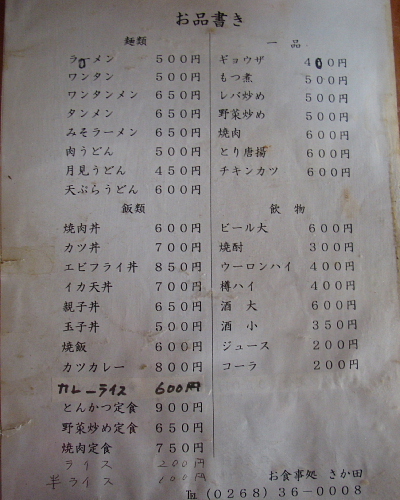 お品書き
麺類
ラーメン 500円
ワンタン 500円
ワンタンメン 650円
タンメン 650円
みそラーメン 650円
肉うどん 500円
月見うどん 450円
天ぷらうどん 600円
飯類
焼肉丼 600円
カツ丼 700円
エビフライ丼 850円
イカ天丼 700円
親子丼 650円
玉子丼 500円
焼飯 600円
カツカレー 800円
カレーライス 600円
とんかつ定食 900円
野菜炒め定食 650円
焼肉定食 750円
ライス 200円
半ライス 100円
一品
ギョウザ 400円
もつ煮 500円
レバ炒め 500円
野菜炒め 500円
焼肉 600円
とり唐揚 600円
チキンカツ 600円
飲物
ビール大 600円
焼酎 300円
ウーロンハイ 400円
樽ハイ 400円
酒大 650円
酒小 350円
ジュース 200円
コーラ 200円
お食事処 きか田
℡(0268)36-0008